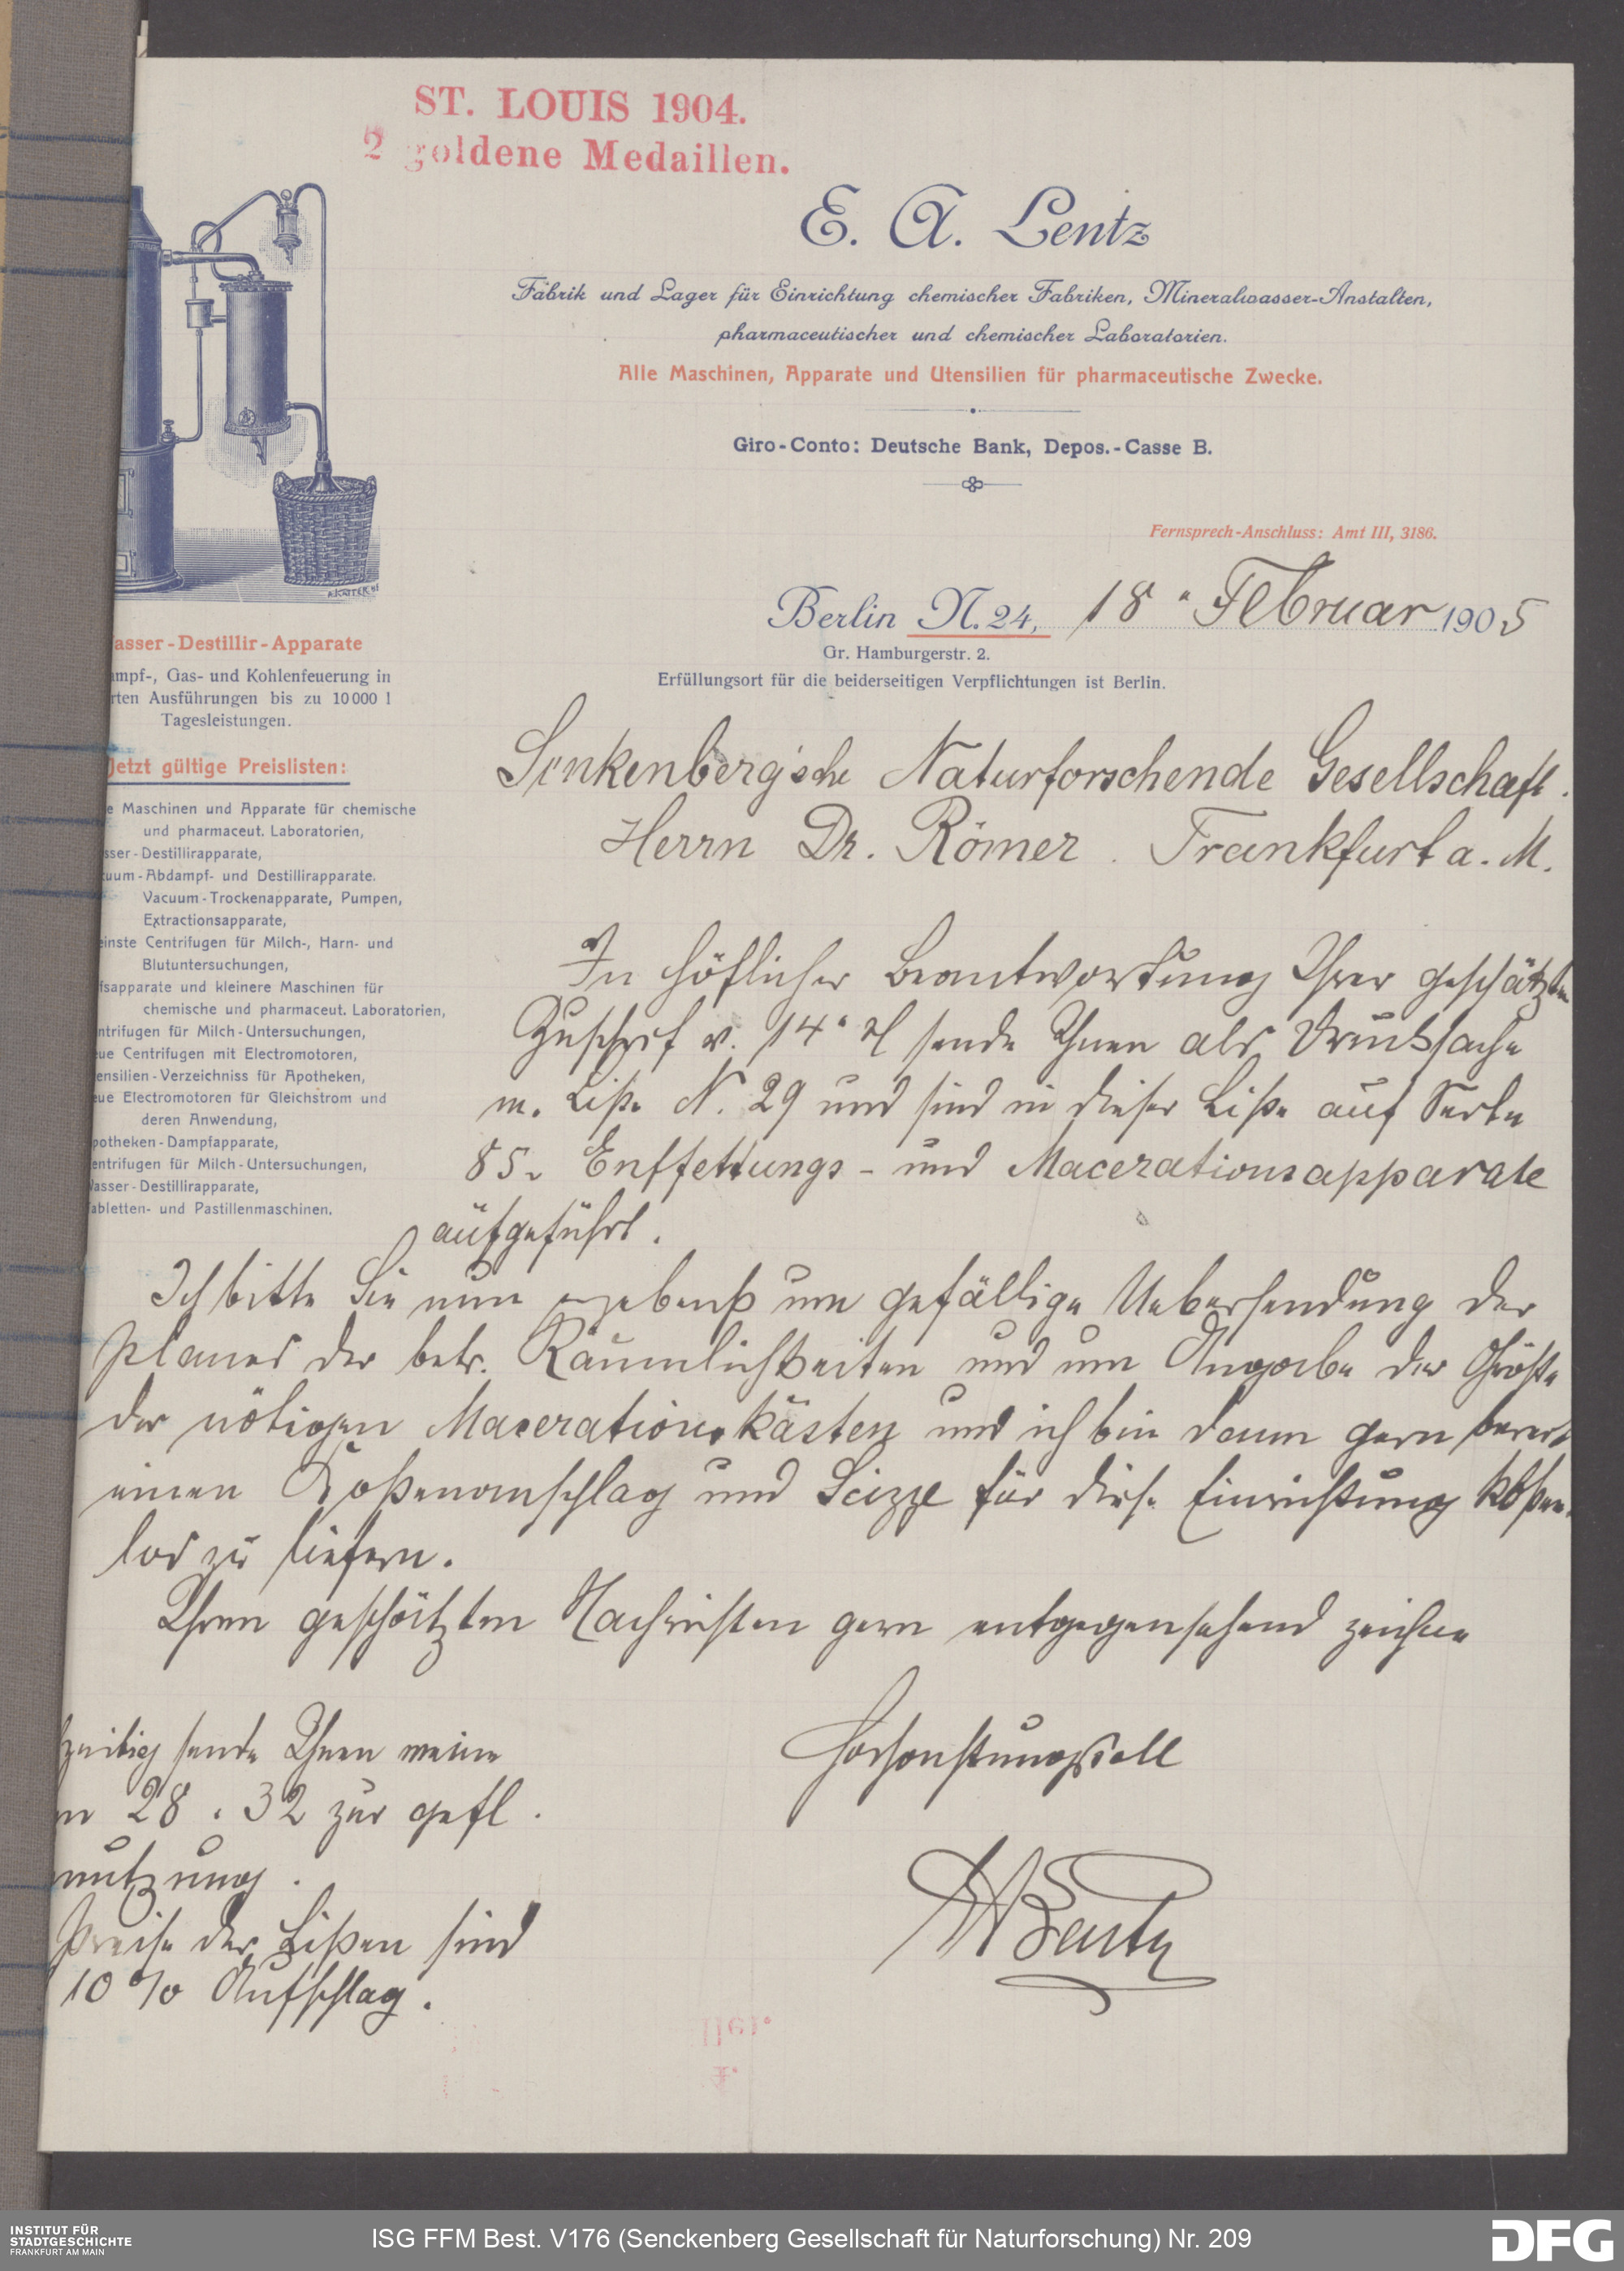 ST. LOUIS 1904.
2 goldene Medaillen.
E. A. Lentz
Fabrik und Lager für Einrichtung chemischer Fabriken, Mineralwasser-Anstalten,
pharmaceutischer und chemischer Laboratorien.
Alle Maschinen, Apparate und Utensilien für pharmaceutische Zwecke.
Giro-Conto: Deutsche Bank, Depos.-Casse B.
Fernsprech-Anschluss: Amt III, 3186.
Berlin N. 24, 18. Februar 1905
Gr. Hamburgerstr. 2.
Erfüllungsort für die beiderseitigen Verpflichtungen ist Berlin.
asser-Destillir-Apparate
mpf-, Gas- und Kohlenfeuerung in
rten Ausführungen bis zu 10000 l
Tagesleistungen.
Jetzt gültige Preislisten:
e Maschinen und Apparate für chemische
und pharmaceut. Laboratorien,
sser-Destillirapparate,
uum-Abdampf- und Destillirapparate.
Vacuum-Trockenapparate, Pumpen,
Extractionsapparate,
einste Centrifugen für Milch-, Harn- und
Blutuntersuchungen,
fsapparate und kleinere Maschinen für
chemische und pharmaceut. Laboratorien,
ntrifugen für Milch-Untersuchungen,
ue Centrifugen mit Electromotoren,
ensilien-Verzeichniss für Apotheken,
ue Electromotoren für Gleichstrom und
deren Anwendung,
potheken-Dampfapparate,
entrifugen für Milch-Untersuchungen,
Wasser-Destillirapparate,
abletten- und Pastillenmaschinen.
Senkenberg'sche Naturforschende Gesellschaft.
Herrn Dr. Römer. Frankfurt a. M.
In höflicher Beantwortung Ihrer geschätzten
Zuschrift v. 14. sende Ihnen als Drucksache
m. Liste N. 29 und sind in dieser Liste auf Seite
85. Entfettungs- und Macerationsapparate
aufgeführt.
Ich bitte Sie nun ergebenst um gefällige Uebersendung der
Planes der betr. Räumlichkeiten und um Angabe der Größe
der nötigen Macerationskästen und ich bin dann gern bereit
einen Kostenanschlag und Scizze für diese Einrichtung kosten-
los zu liefern.
Ihren geschätzten Nachrichten gern entgegensehend zeichne
Hochachtungsvoll
Lentz
zeitig sende Ihnen meine
n 28. 32 zur gefl.
nutzung.
Preise der Listen sind
10 % Aufschlag.
INSTITUT FÜR
STADTGESCHICHTE
FRANKFURT AM MAIN
ISG FFM Best. V176 (Senckenberg Gesellschaft für Naturforschung) Nr. 209
DFG